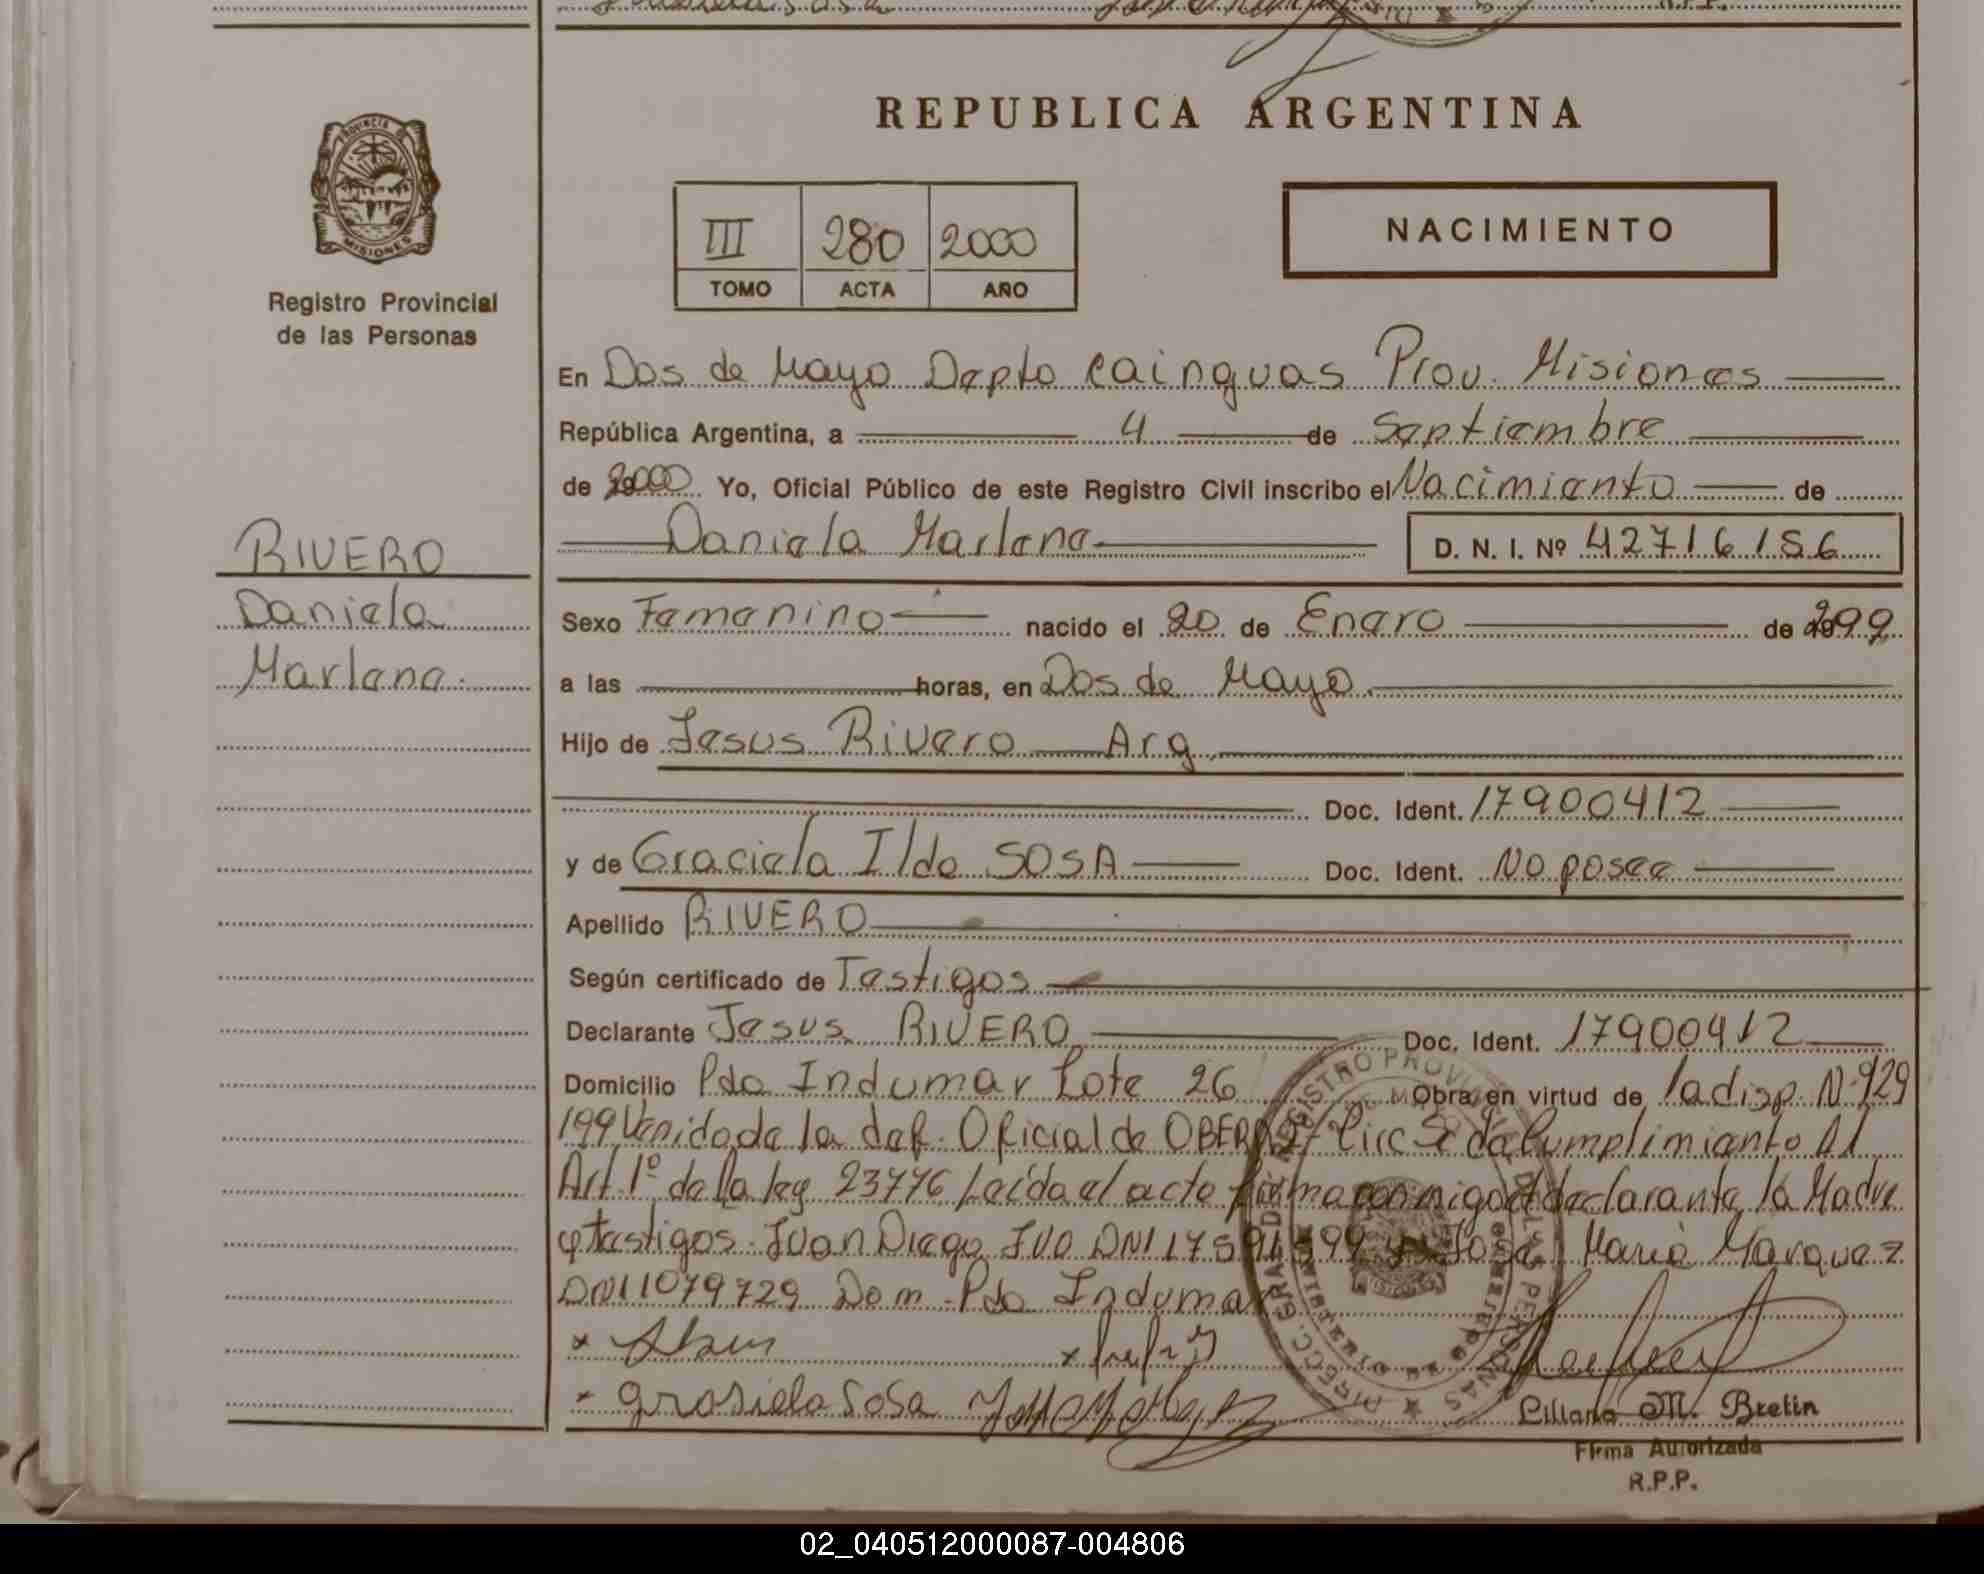 REPUBLICA ARGENTINA
PROVINCIA DE
MISIONES
Registro Provincial
de las Personas
III 280 2000
TOMO ACTA AÑO
NACIMIENTO
En Dos de Mayo Depto Cainguas Prov. Misiones
República Argentina, a 4 de Septiembre
de 2000 Yo, Oficial Público de este Registro Civil inscribo el Nacimiento de
Daniela Marlene D. N. I. Nº 42716156
RIVERO
Daniela
Marlene
Sexo Femenino nacido el 20 de Enero de 1999
a las horas, en Dos de Mayo
Hijo de Jesus Rivero Arg
Doc. Ident. 17900412
y de Graciela Ilda SOSA Doc. Ident. No posee
Apellido RIVERO
Según certificado de Testigos
Declarante Jesus RIVERO Doc. Ident. 17900412
Domicilio Pdo Indumar Lote 26 Obra en virtud de la disp. Nº 929
199 Venido de la def. Oficial de OBERA Circ da Cumplimiento Al
Art. 1º de la ley 23776 Leída el acto firma conmigo el declarante, la Madre
y testigos. Juan Diego DNI 17591599 y José María Marquez
DNI 11079729 Dom. Pdo Indumar
Grasiela Sosa
Liliana M. Bretin
Firma Autorizada
R.P.P.
02_040512000087-004806